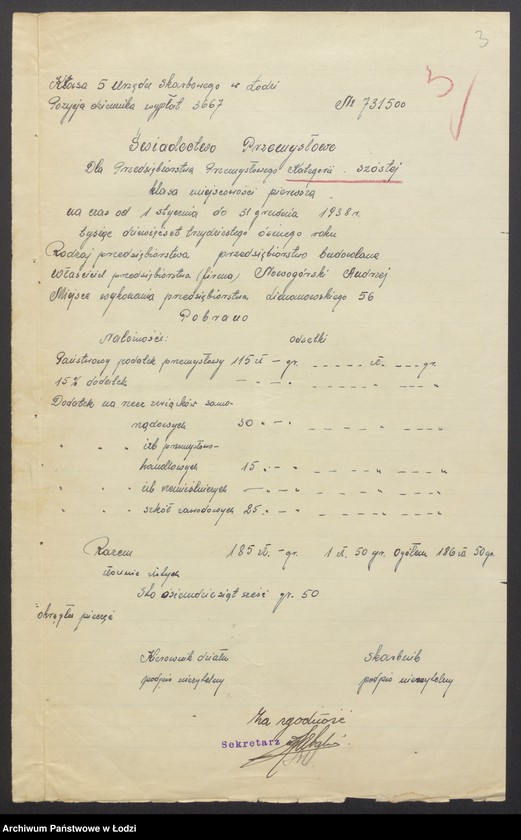 3
Kassa 5 Urzędu Skarbowego w Łodzi
Pozycja dziennika wypłat 3667 № 731500
Świadectwo Przemysłowe
Dla Przedsiębiorstwa Przemysłowego Kategorii szóstej
klasa miejscowości pierwsza
na czas od 1 stycznia do 31 grudnia 1938 r.
tysiąc dziewięćset trzydziestego ósmego roku
Rodzaj przedsiębiorstwa przedsiębiorstwo budowlane
Właściciel przedsiębiorstwa (firma) Nowogórski Andrzej
Miejsce wykonania przedsiębiorstwa Limanowskiego 56
Pobrano
Należność: Odsetki
Państwowy podatek przemysłowy 115 zł - gr. — — — zł. — — gr.
15% dodatek — " — " — — — " — — "
Dodatek na rzecz związków samo-
rządowych 30 " — " — — — " — — "
" " " izb przemysłowo-
handlowych 15 " — " — — — " — — "
" " " izb rzemieślniczych — " — " — — — " — — "
" " " szkół zawodowych 25 " — " — — — " — — "
Razem 185 zł. - gr. 1 zł. 50 gr. Ogółem 186 zł 50 gr.
słownie złotych
Sto osiemdziesiąt sześć gr. 50
okrągła pieczęć
Kierownik działu Skarbnik
podpis nieczytelny podpis nieczytelny
Za zgodność
Sekretarz
Archiwum Państwowe w Łodzi